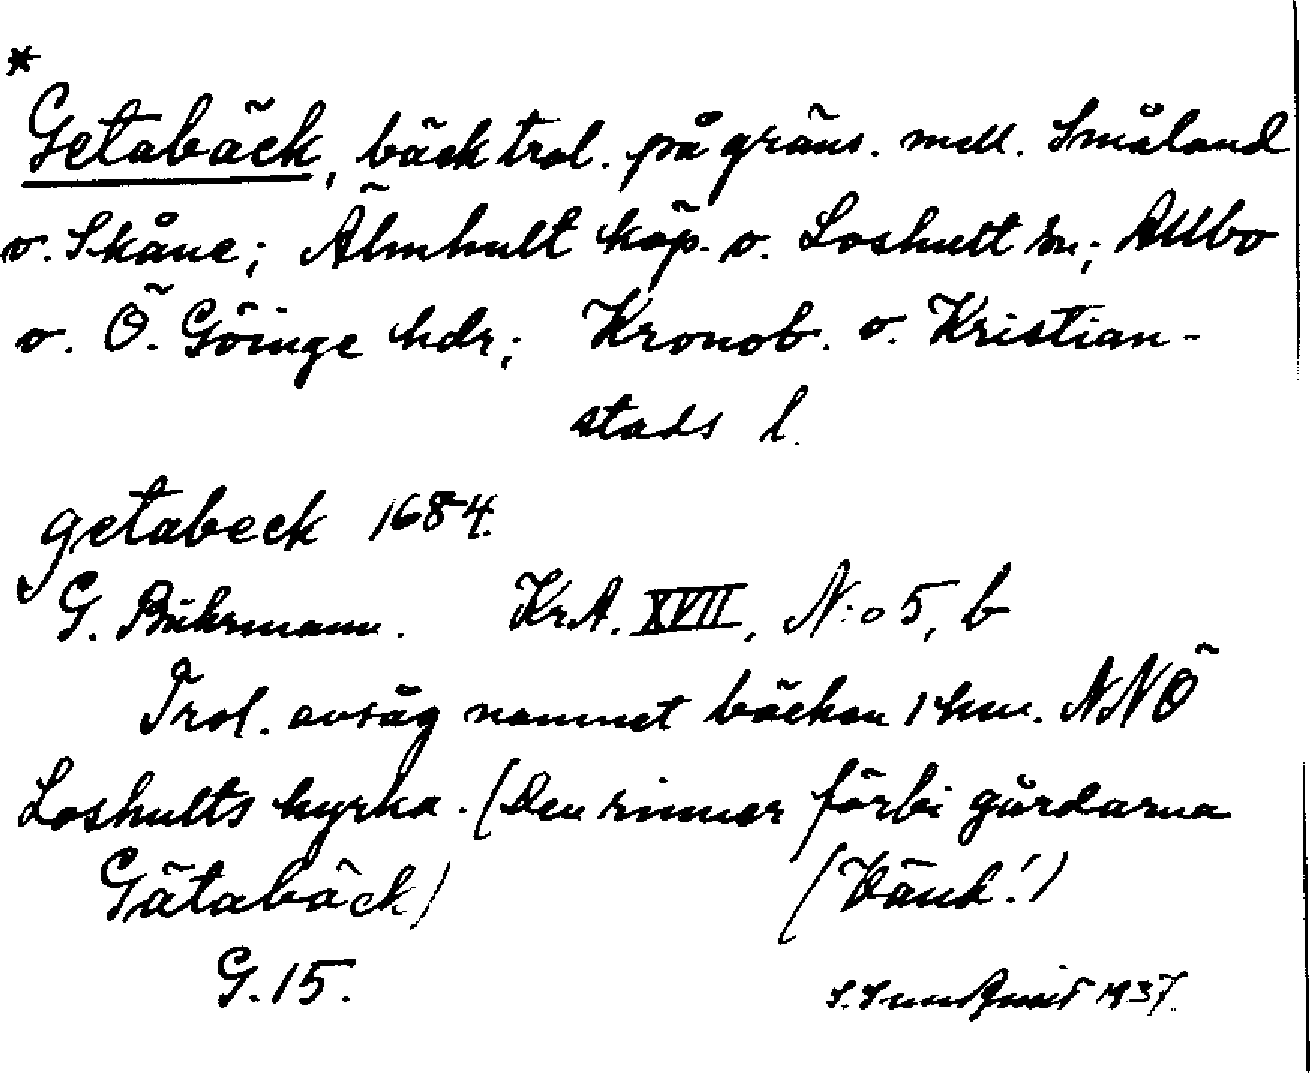 *
Getabäck, bäck trol. på gräns. mell. Småland
o. Skåne; Älmhult köp. o. Loshult sn; Allbo
o. Ö. Göinge hdr; Kronob. o. Kristian-
stads l.
getabeck 1684.
G. Buhrmann. Kr.A. XVII, N:o 5, b
Trol. avsåg namnet bäcken 1 km. NNÖ
Loshults kyrka. (Den rinner förbi gårdarna
Gätabäck) (Vänd!)
G. 15.
1937.